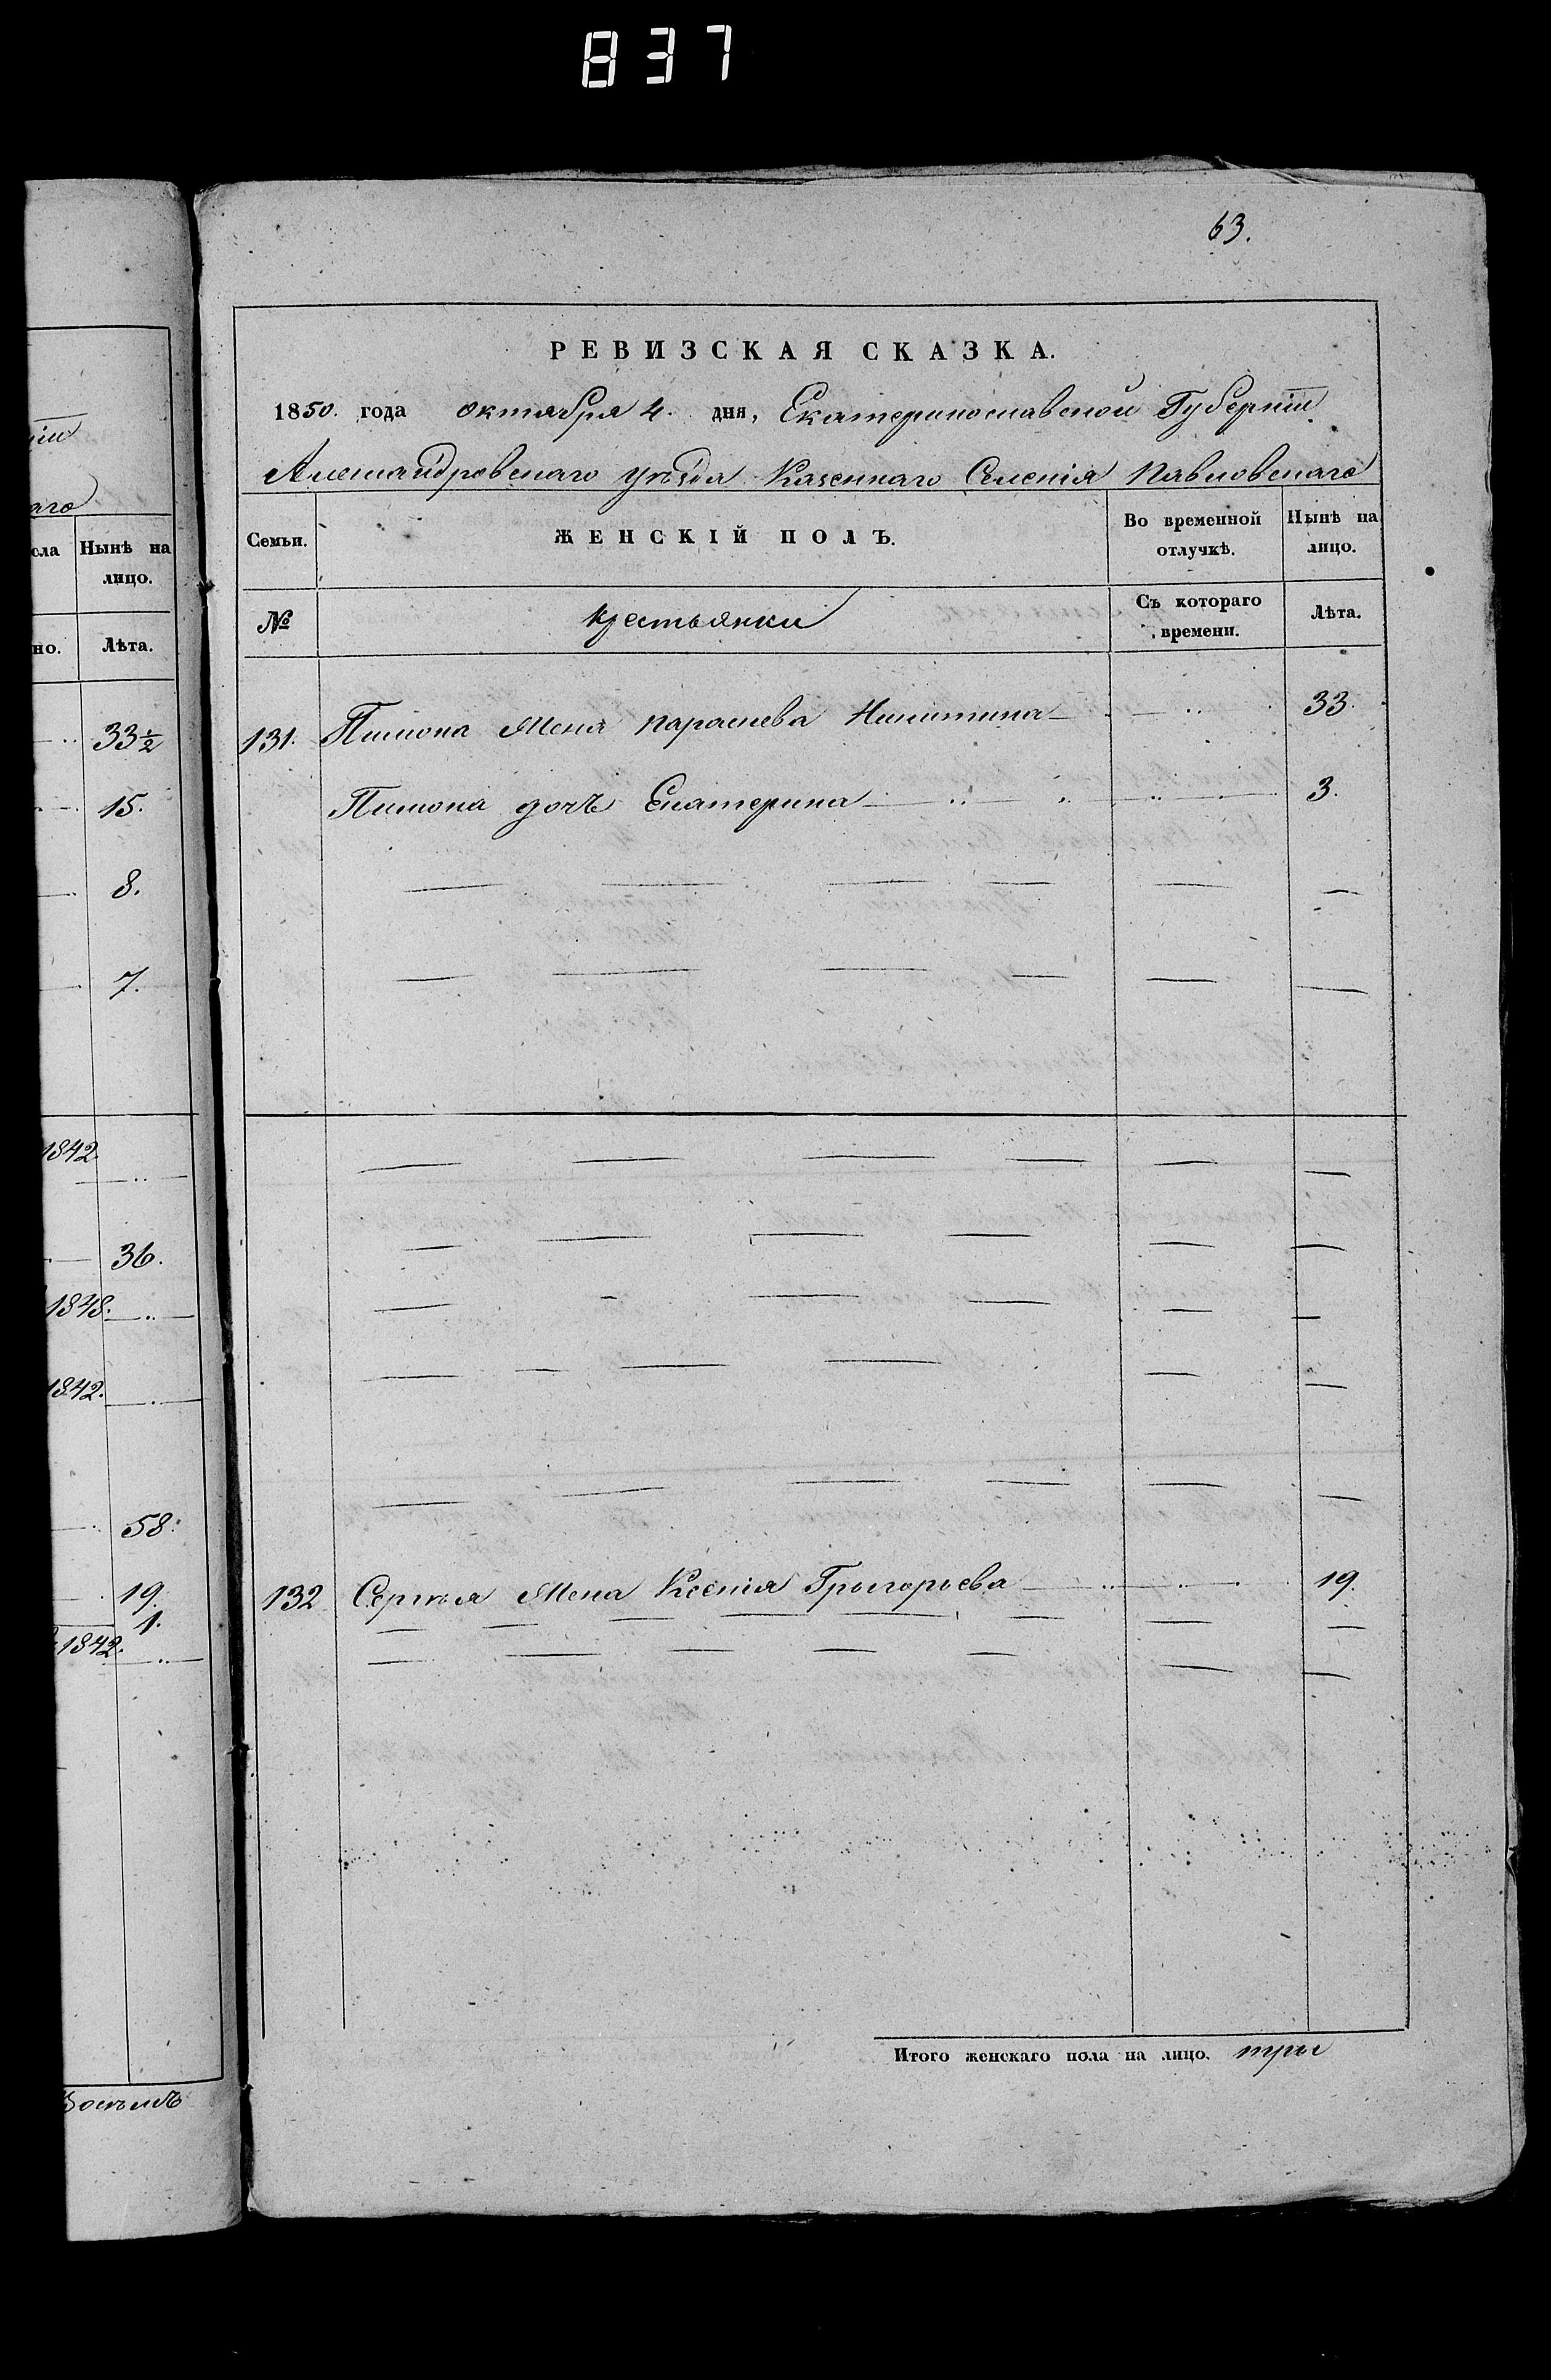 837
63.
РЕВИЗСКАЯ СКАЗКА.
1850. года октября 4. дня, Екатеринославской Губерніи
Александровскаго уѣзда Казеннаго Селенія Павловскаго
Семьи. ЖЕНСКІЙ ПОЛЪ. Во временной отлучкѣ. Нынѣ на лицо.
№ крестьянки Съ котораго времени. Лѣта.
131. Пимона жена Параскева Никитина 33.
Пимона дочь Екатерина 3.
132 Сергѣя жена Ксенія Григорьева 19.
Итого женскаго пола на лицо. три
ніи
аго
сла Нынѣ на лицо.
но. Лѣта.
33½
15.
8.
7.
1842
36.
1848.
1842.
58.
19.
1.
1842.
Восемь